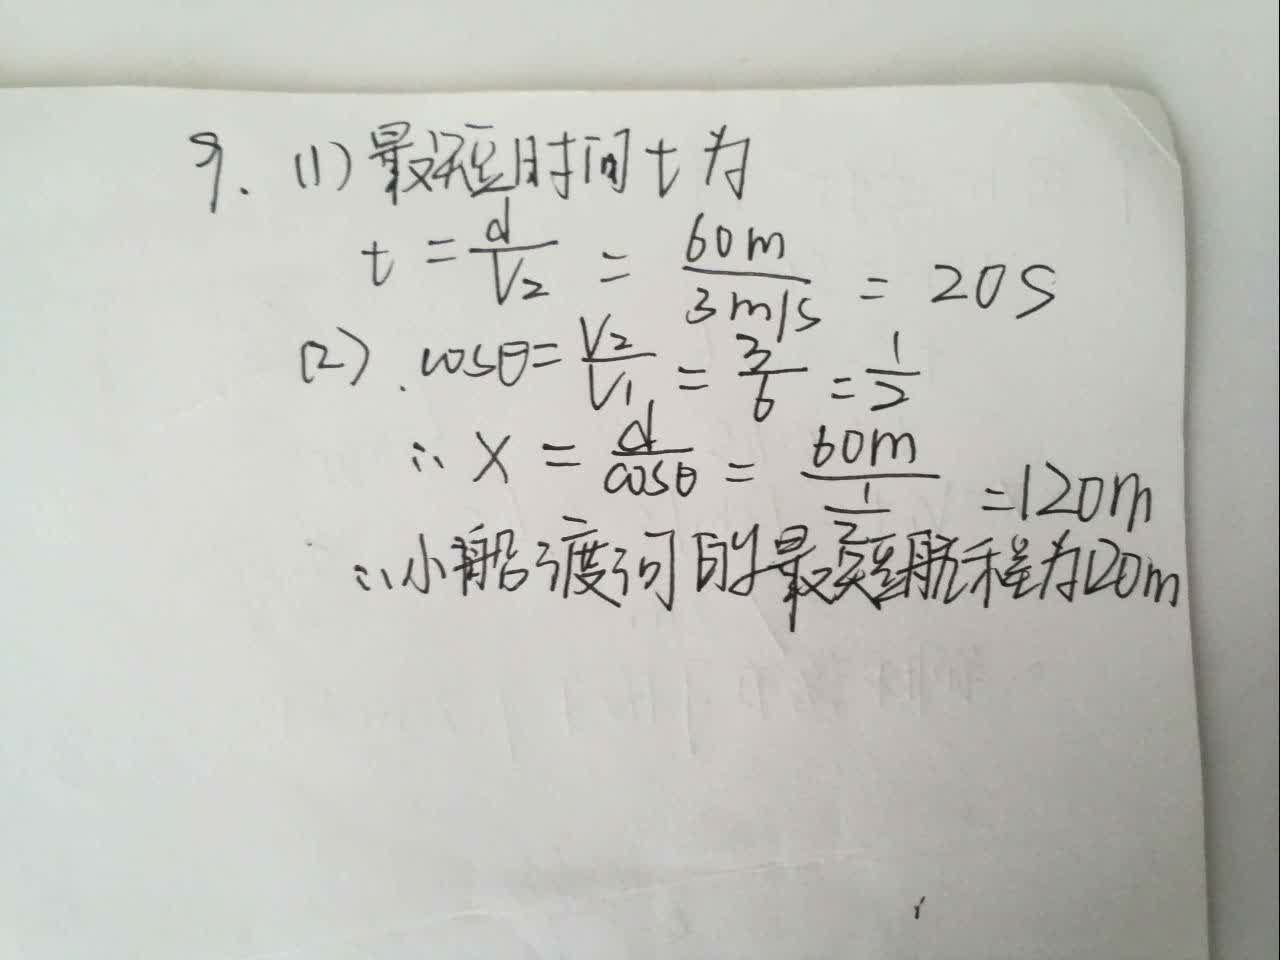 9. (1) 最短时间t为
t = d/V₂ = 60m/3m/s = 20s
(2). cosθ = V₂/V₁ = 3/6 = 1/2
∴ X = d/cosθ = 60m/(1/2) = 120m
∴小船渡河的最短航程为120m